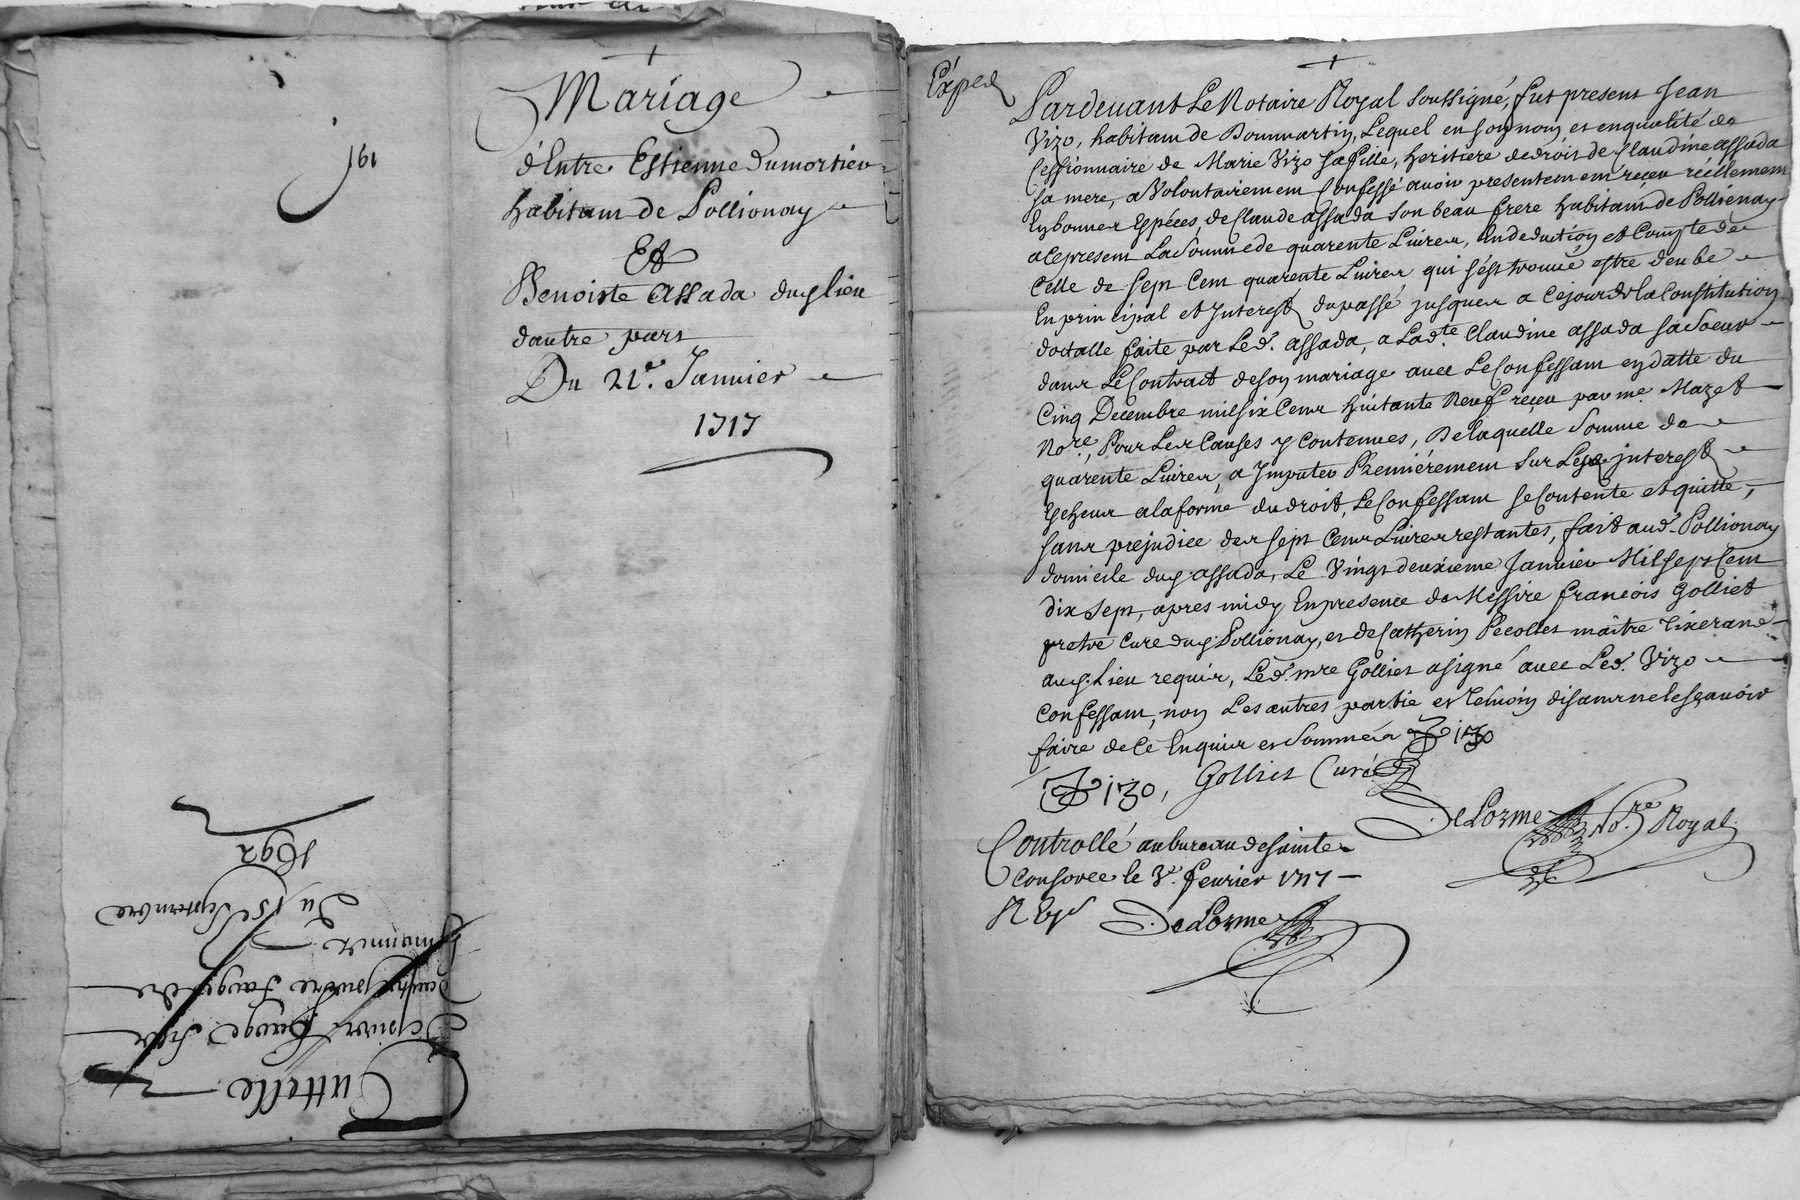 161
Mariage
d'Entre Estienne Dumortier
habitant de Pollionay
Et
Benoiste Assada dud lieu
dautre part
Du 21e. Janvier
1717
Tuttelle
Du 15e Septembre
1692
Exped
Pardevant Le Notaire Royal Soussigné, fut present Jean
Vizo, habitant de Dommartin, Lequel en son nom et en qualité de
Cessionnaire de Marie Vizo sa fille, heritiere de droit de Claudine assada
sa mere, a Volontairement Confessé avoir presentement réçeu réellement
En bonnes Espéces, de Claude assada son beau frere habitant de Pollionay
a ce present La Somme de quarente Livres, En deduction et Compte de
Celle de sept Cent quarente Livres qui s'est trouvé estre deube
En principal et Interest du passé jusques a ce jour de la Constitution
dottalle faite par Led. assada, a Lad.te Claudine assada sa soeur
dans Le Contract de son mariage avec Le Confessant en datte du
Cinq Decembre mil six Cent huitante Neuf reçeu par me. Mazet
No.re, Pour Les Causes y Contenues, De laquelle Somme de
quarente Livres, a Imputer Premiérement sur Les interest
Escheus a la forme du droit, Le Confessant se Contente et quitte,
sans prejudice des sept Cent Livres restantes, fait aud. Pollionay
domicile dud. assada, Le Vingt deuxiéme Janvier Mil sept Cent
dix sept, apres midy En presence de Messire francois Golliet
pretre Curé dud. Pollionay, et de Catherin Pecollet maître Tixerand
aud. Lieu requis, Led. mre Golliet a signé avec Led. Vizo
Confessant, non Les autres partie et Temoin disant ne le sçavoir
faire de ce Enquis et Sommés
Golliet Curé
DeLorme No.re Royal
Controllé au bureau de sainte
Consorce le 3e. fevrier 1717
DeLorme